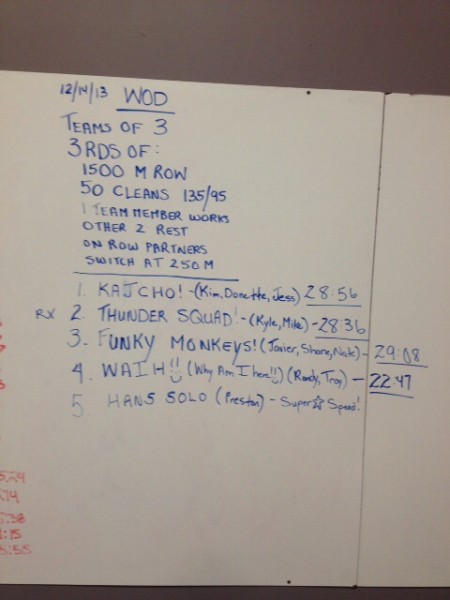 12/14/13 WOD
TEAMS OF 3
3 RDS OF:
1500 M ROW
50 CLEANS 135/95
1 TEAM MEMBER WORKS
OTHER 2 REST
ON ROW PARTNERS
SWITCH AT 250 M
1. KAJCHO! - (Kim, Donette, Jess) 28:56
RX 2. THUNDER SQUAD! - (Kyle, Mike) - 28:36
3. FUNKY MONKEYS! (Javier, Shane, Nick) - 29:08
4. WAIH!! (Why Am I here!!) (Randy, Troy) - 22:47
5. HANS SOLO (Preston) - Super☆Speed!
5:29
:14
:38
:15
5:55